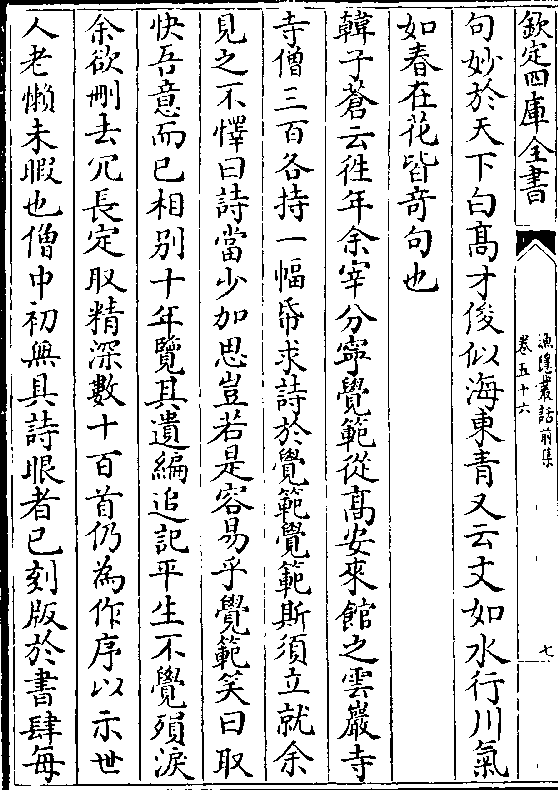 欽定四庫全書
漁隱叢話前集
卷五十六
七
句妙於天下曰髙才俊似海東青又云文如水行川氣
如春在花皆竒句也
韓子蒼云徃年余宰分寧覺範從髙安來館之雲巖寺
寺僧三百各持一幅帋求詩於覺範覺範斯須立就余
見之不懌曰詩當少加思豈若是容易乎覺範笑曰取
快吾意而已相别十年覽其遺編追記平生不覺殞淚
余欲刪去冗長定取精深數十百首仍為作序以示世
人老懶未暇也僧中初無具詩眼者已刻版於書肆每